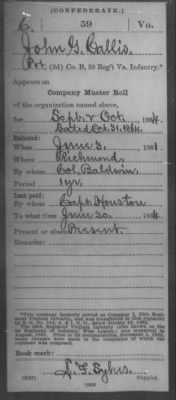 (CONFEDERATE.)
C. 59 Va.
John G. Callis
Pvt., (3d) Co. B, 59 Reg't Va. Infantry.*
Appears on
Company Muster Roll
of the organization named above,
for Sept. & Oct. 1864.
Dated Oct. 31, 1864.
Enlisted:
When June 3, 1861
Where Richmond
By whom Col. Baldwin
Period 1 yr.
Last paid:
By whom Capt. Houston
To what time June 30, 1864
Present or absent Present.
Remarks:
Book mark:
S. F. Sykes
Copyist.